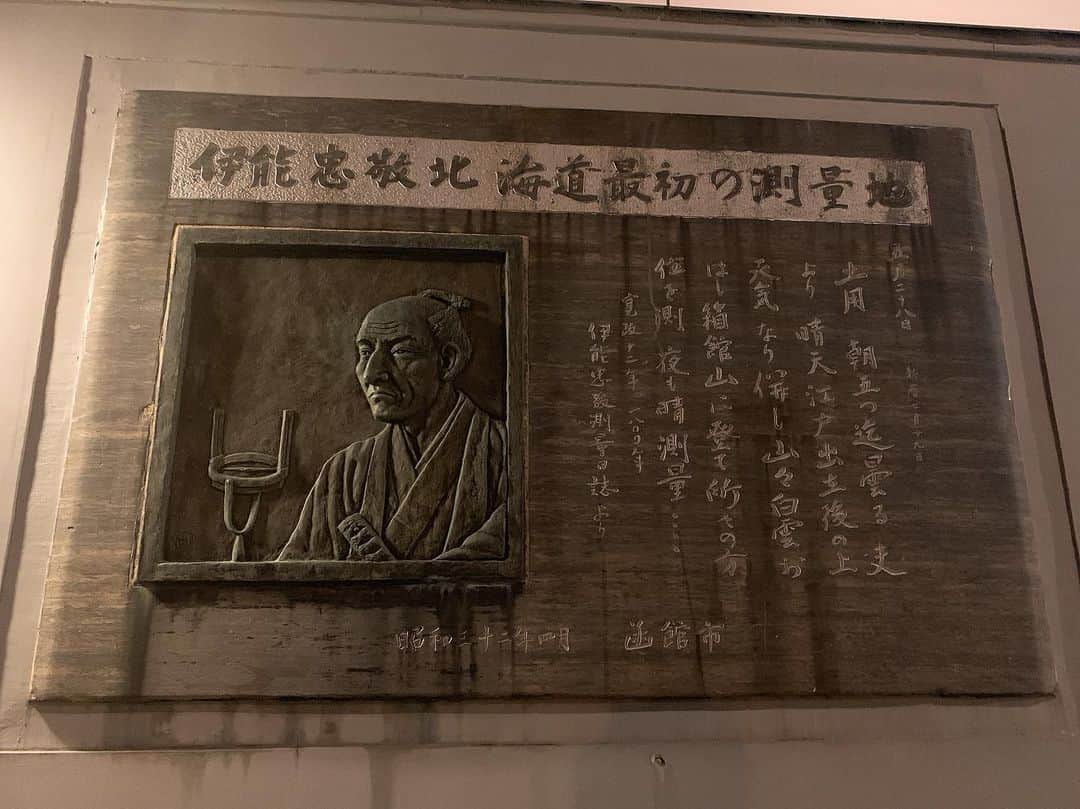 伊能忠敬北海道最初の測量地
五月二十八日
土用 朝五つ迄曇る夫
より 晴天江戸出立後の上
天気なり併し山々白雲お
ほし箱館山に登て所々の方
位を測 夜も晴測量・・
寛政十二年 一八〇〇年
伊能忠敬測量日誌より
昭和三十二年四月 函館市